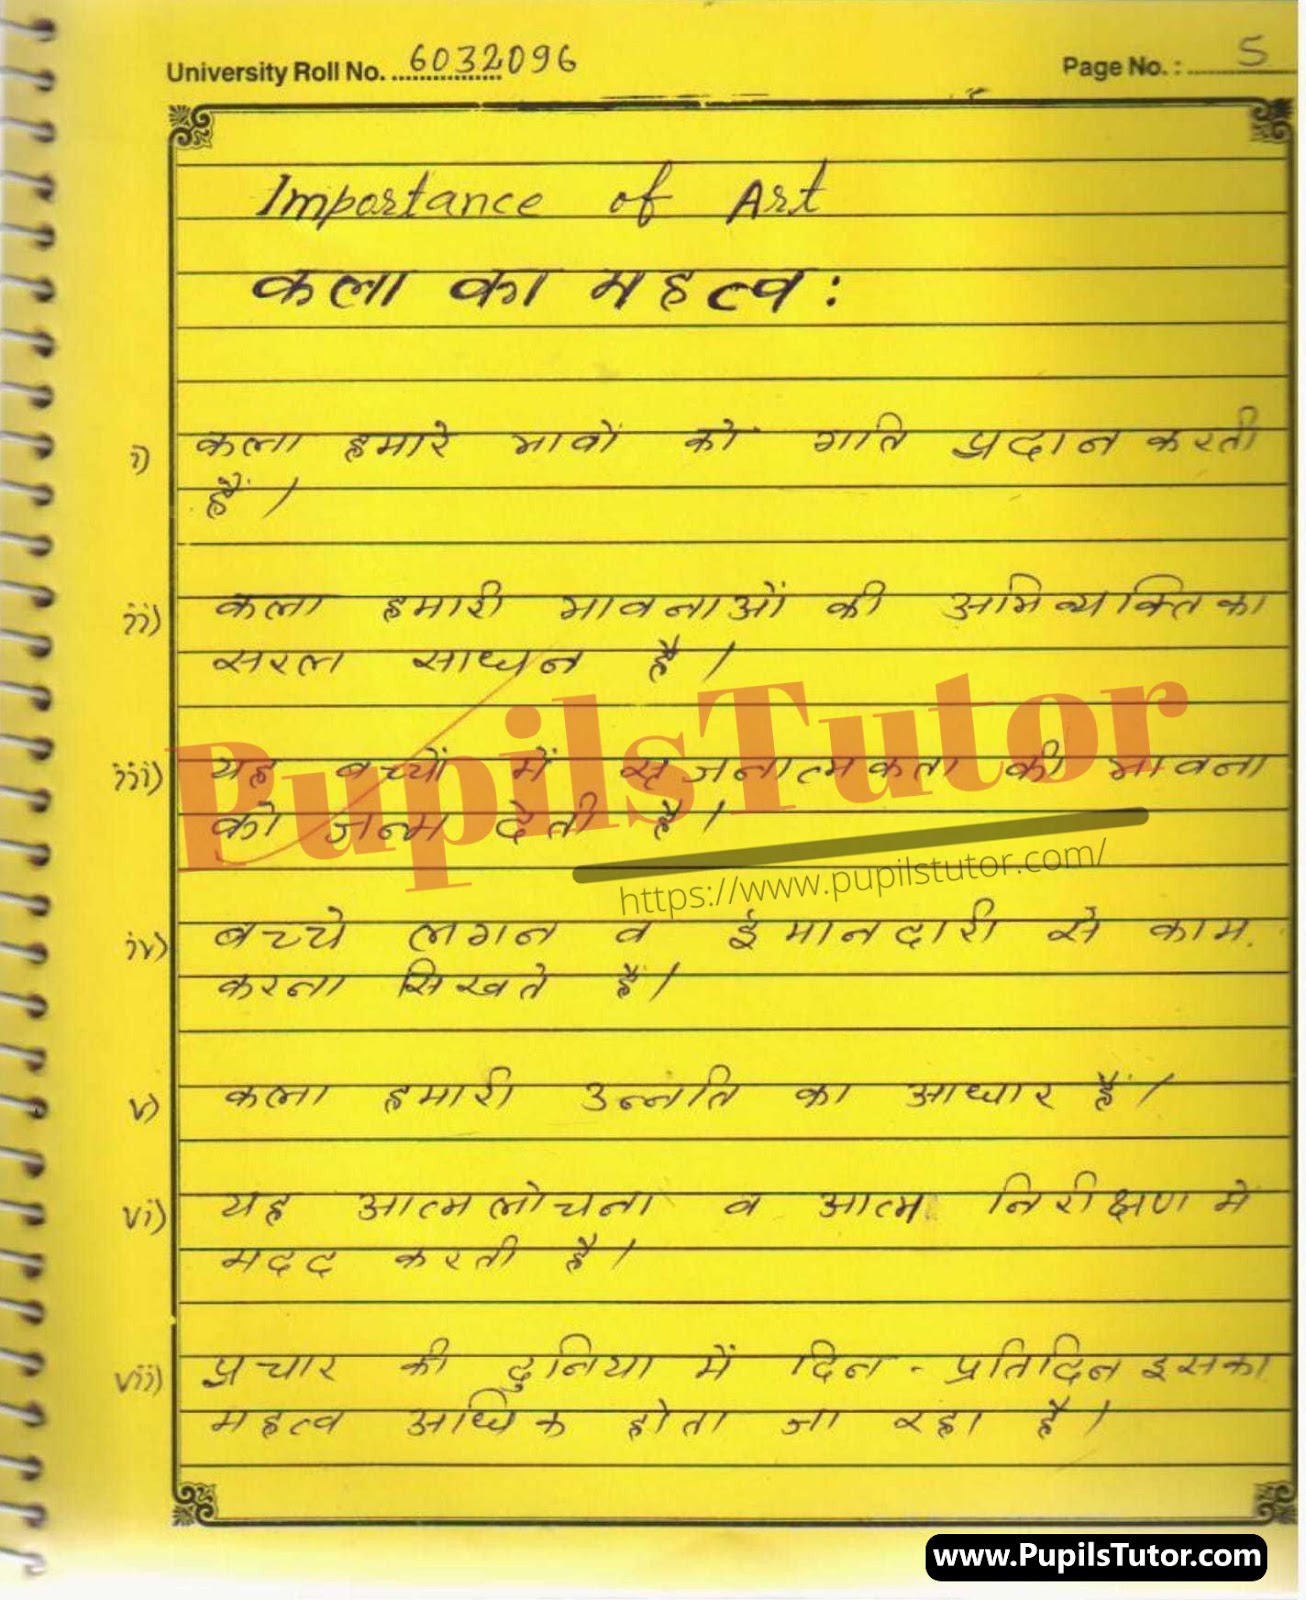 University Roll No. 6032096 Page No. : 5
Importance of Art
कला का महत्व :
i) कला हमारे भावों को गति प्रदान करती
हैं।
ii) कला हमारी भावनाओं की अभिव्यक्ति का
सरल साधन है।
iii) यह बच्चों में सृजनात्मकता की भावना
को जन्म देती है।
PupilsTutor
https://www.pupilstutor.com/
iv) बच्चे लगन व ईमानदारी से काम
करना सिखते हैं।
v) कला हमारी उन्नति का आधार हैं।
vi) यह आत्मलोचना व आत्म निरीक्षण मे
मदद करती है।
vii) प्रचार की दुनिया में दिन - प्रतिदिन इसका
महत्व अधिक होता जा रहा है।
www.PupilsTutor.com